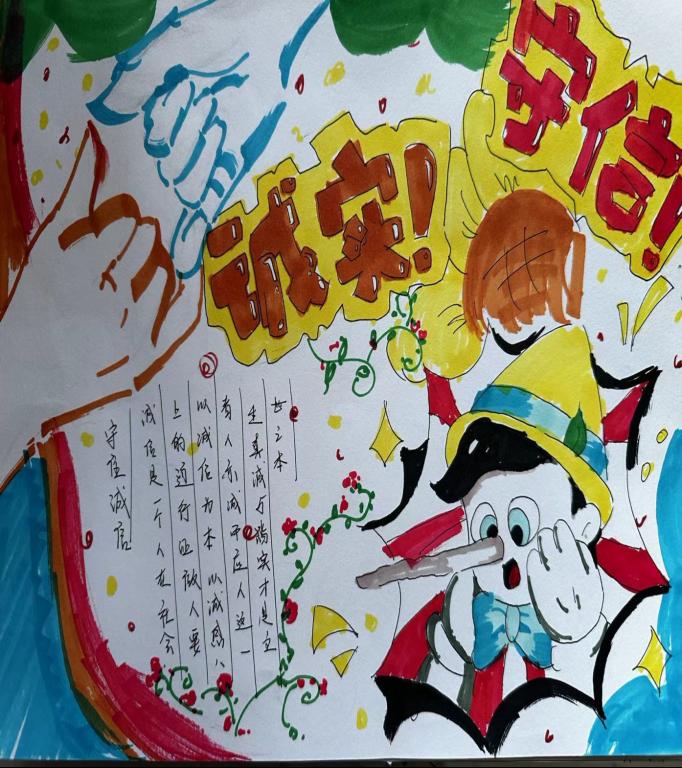 诚实!
守信!
守住诚信
诚信是一个人在社会
上的通行证做人要
以诚信为本以诚感人
者人亦诚而应人这一
生真诚实才是立
世之本